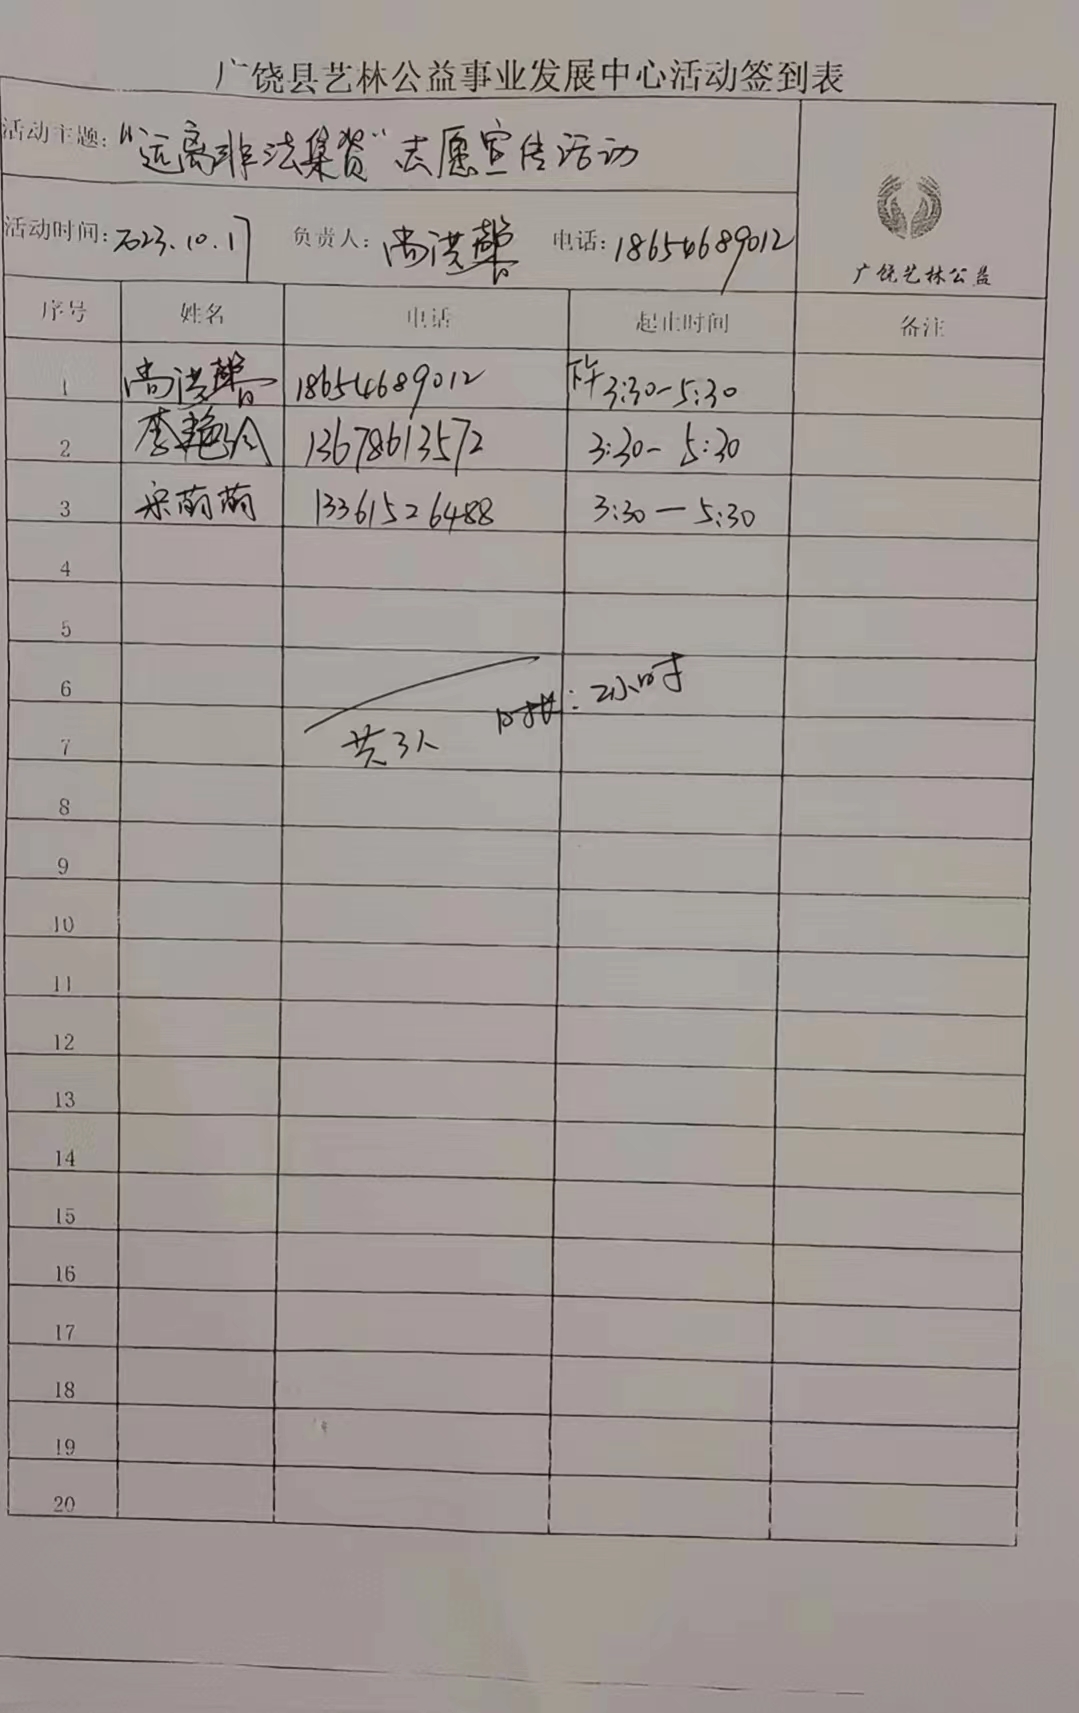 广饶县艺林公益事业发展中心活动签到表
活动主题："远离非法集资"志愿宣传活动
活动时间：2023.10.17 负责人：尚洪馨 电话：18654689012
广饶艺林公益
序号 姓名 电话 起止时间 备注
1 尚洪馨 18654689012 下午3:30-5:30
2 李艳玲 13678613572 3:30-5:30
3 宋萌萌 13361526488 3:30-5:30
4
5
6
7 共3人 时长：2小时
8
9
10
11
12
13
14
15
16
17
18
19
20